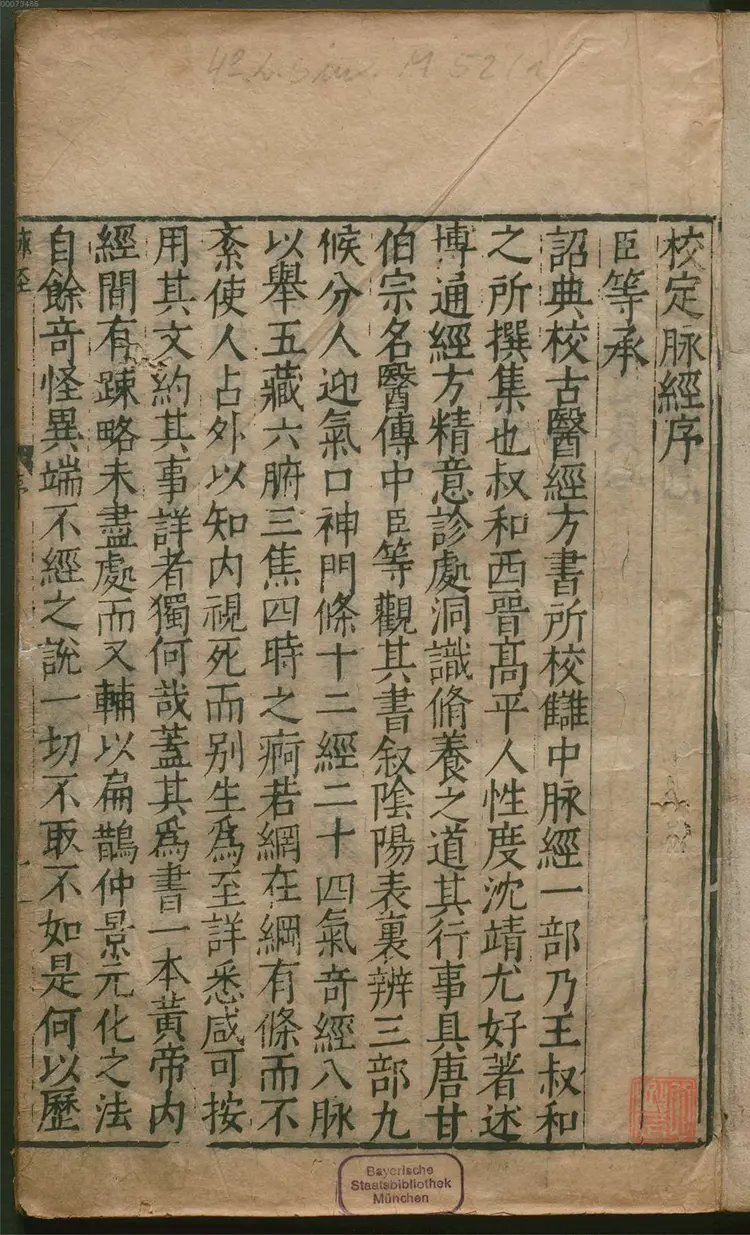 00073465
4° L. sin. M 52/1
校定脉經序
臣等承
詔典校古醫經方書所校讎中脉經一部乃王叔和
之所撰集也叔和西晉高平人性度沈靖尤好著述
博通經方精意診處洞識脩養之道其行事具唐甘
伯宗名醫傳中臣等觀其書叙陰陽表裏辨三部九
候分人迎氣口神門條十二經二十四氣奇經八脉
以舉五藏六腑三焦四時之痾若網在綱有條而不
紊使人占外以知内視死而别生爲至詳悉咸可按
用其文約其事詳者獨何哉蓋其爲書一本黃帝内
經間有踈略未盡處而又輔以扁鵲仲景元化之法
自餘奇怪異端不經之說一切不取不如是何以歷
脉經
序
Bayerische
Staatsbibliothek
München